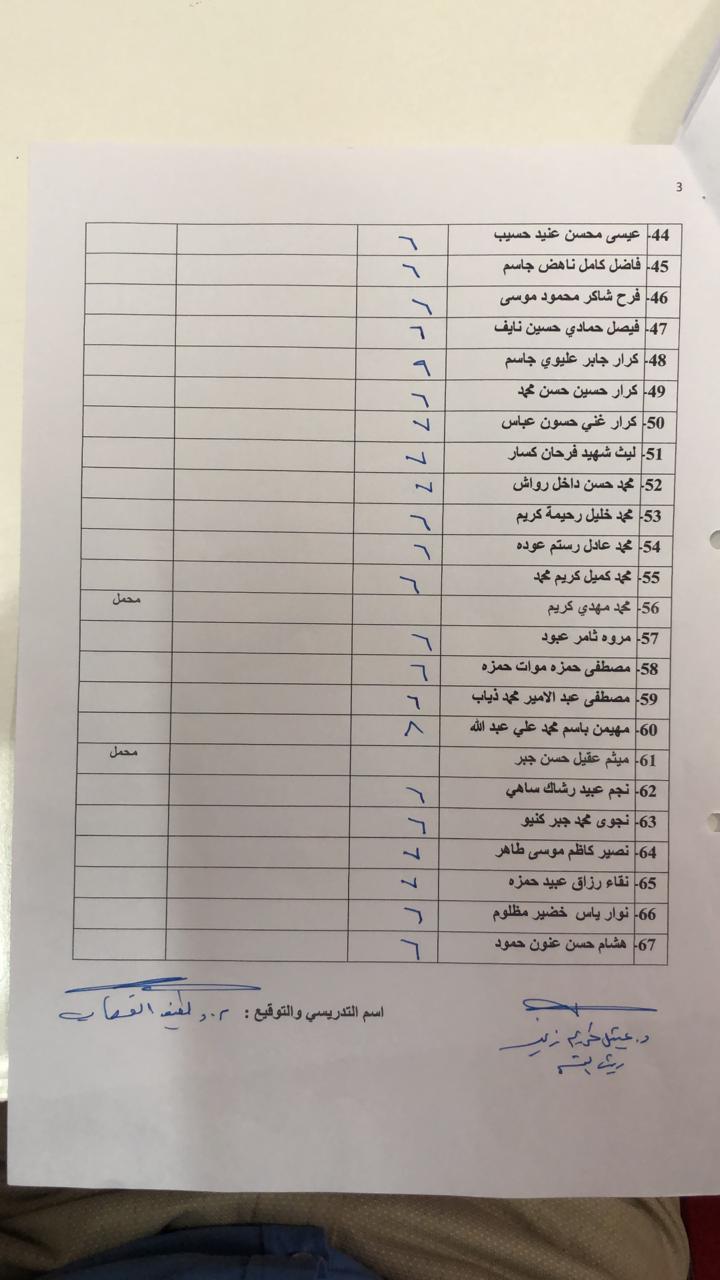 3
44- عيسى محسن عنيد حسيب ٦
45- فاضل كامل ناهض جاسم ٦
46- فرح شاكر محمود موسى ٦
47- فيصل حمادي حسين نايف ٦
48- كرار جابر عليوي جاسم ٩
49- كرار حسين حسن محمد ٦
50- كرار غني حسون عباس ٧
51- ليث شهيد فرحان كسار ٧
52- محمد حسن داخل رواش ٧
53- محمد خليل رحيمة كريم ٦
54- محمد عادل رستم عوده ٦
55- محمد كميل كريم محمد ٦
56- محمد مهدي كريم محمل
57- مروه ثامر عبود ٦
58- مصطفى حمزه موات حمزه ٦
59- مصطفى عبد الامير محمد ذياب ٦
60- مهيمن باسم محمد علي عبد الله ٨
61- ميثم عقيل حسن جبر محمل
62- نجم عبيد رشاك ساهي ٦
63- نجوى محمد جبر كنيو ٦
64- نصير كاظم موسى طاهر ٧
65- نقاء رزاق عبيد حمزه ٧
66- نوار ياس خضير مظلوم ٦
67- هشام حسن عنون حمود ٦
اسم التدريسي والتوقيع :